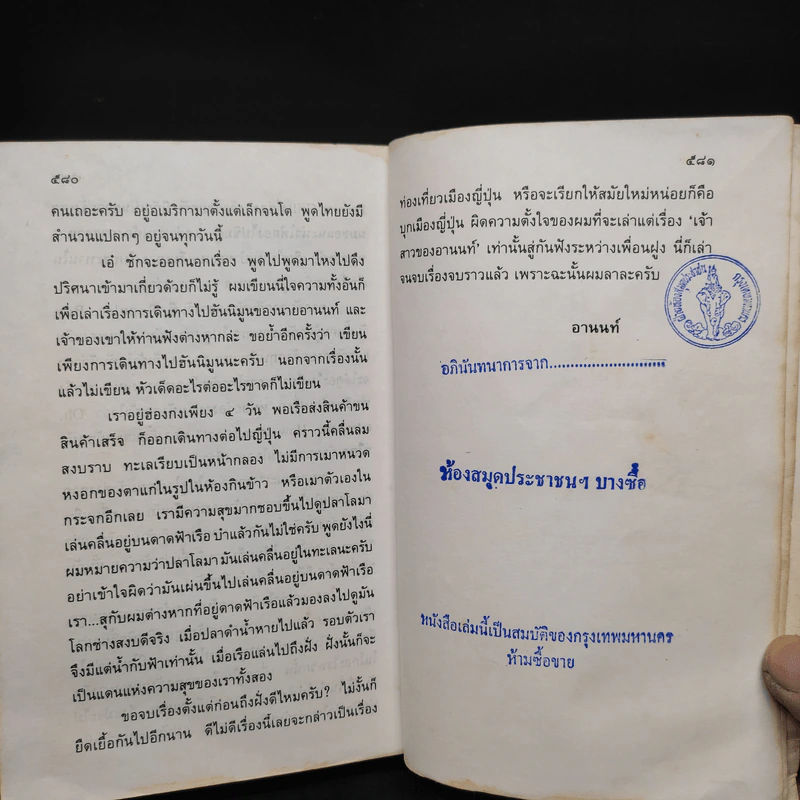 ๕๘๐
คนเถอะครับ อยู่อเมริกามาตั้งแต่เล็กจนโต พูดไทยยังมี
สำนวนแปลกๆ อยู่จนทุกวันนี้
เอ๋ ชักจะออกนอกเรื่อง พูดไปพูดมาไหงไปดึง
ปริศนาเข้ามาเกี่ยวด้วยก็ไม่รู้ ผมเขียนนี่ใจความทั้งอันก็
เพื่อเล่าเรื่องการเดินทางไปฮันนิมูนของนายอานนท์ และ
เจ้าของเขาให้ท่านฟังต่างหากล่ะ ขอย้ำอีกครั้งว่า เขียน
เพียงการเดินทางไปฮันนิมูนนะครับ นอกจากเรื่องนั้น
แล้วไม่เขียน หัวเด็ดอะไรต่ออะไรขาดก็ไม่เขียน
เราอยู่ฮ่องกงเพียง ๔ วัน พอเรือส่งสินค้าขน
สินค้าเสร็จ ก็ออกเดินทางต่อไปญี่ปุ่น คราวนี้คลื่นลม
สงบราบ ทะเลเรียบเป็นหน้ากลอง ไม่มีการเมาหนวด
หงอกของตาแก่ในรูปในห้องกินข้าว หรือเมาตัวเองใน
กระจกอีกเลย เรามีความสุขมากชอบขึ้นไปดูปลาโลมา
เล่นคลื่นอยู่บนดาดฟ้าเรือ บ๋าแล้วกันไม่ใช่ครับ พูดยังไงนี่
ผมหมายความว่าปลาโลมา มันเล่นคลื่นอยู่ในทะเลนะครับ
อย่าเข้าใจผิดว่ามันเผ่นขึ้นไปเล่นคลื่นอยู่บนดาดฟ้าเรือ
เรา...สุกับผมต่างหากที่อยู่ดาดฟ้าเรือแล้วมองลงไปดูมัน
โลกช่างสงบดีจริง เมื่อปลาดำน้ำหายไปแล้ว รอบตัวเรา
จึงมีแต่น้ำกับฟ้าเท่านั้น เมื่อเรือแล่นไปถึงฝั่ง ฝั่งนั้นก็จะ
เป็นแดนแห่งความสุขของเราทั้งสอง
ขอจบเรื่องตั้งแต่ก่อนถึงฝั่งดีไหมครับ? ไม่งั้นก็
ยืดเยื้อกันไปอีกนาน ดีไม่ดีเรื่องนี้เลยจะกล่าวเป็นเรื่อง
๕๘๑
ท่องเที่ยวเมืองญี่ปุ่น หรือจะเรียกให้สมัยใหม่หน่อยก็คือ
บุกเมืองญี่ปุ่น ผิดความตั้งใจของผมที่จะเล่าแต่เรื่อง ‘เจ้า
สาวของอานนท์’ เท่านั้นสู่กันฟังระหว่างเพื่อนฝูง นี่ก็เล่า
จนจบเรื่องจบราวแล้ว เพราะฉะนั้นผมลาละครับ
อานนท์
กรุงเทพมหานคร
อภินันทนาการจาก............................
ห้องสมุดประชาชนฯ บางซื่อ
หนังสือเล่มนี้เป็นสมบัติของกรุงเทพมหานคร
ห้ามซื้อขาย